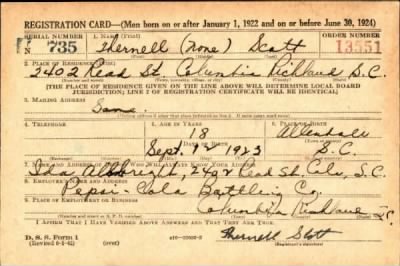 REGISTRATION CARD—(Men born on or after January 1, 1922 and on or before June 30, 1924)
SERIAL NUMBER 1. NAME (Print) ORDER NUMBER
N 735 Thernell (None) Scott 13551
2. PLACE OF RESIDENCE (Print)
2402 Read St. Columbia Richland S.C.
[THE PLACE OF RESIDENCE GIVEN ON THE LINE ABOVE WILL DETERMINE LOCAL BOARD
JURISDICTION; LINE 2 OF REGISTRATION CERTIFICATE WILL BE IDENTICAL]
3. MAILING ADDRESS
Same
4. TELEPHONE 5. AGE IN YEARS 6. PLACE OF BIRTH
18 Allendale
DATE OF BIRTH
Sept. 1923 S.C.
7. NAME AND ADDRESS OF PERSON WHO WILL ALWAYS KNOW YOUR ADDRESS
Ida Allbright, 2402 Read St. Cola, S.C.
8. EMPLOYER'S NAME AND ADDRESS
Pepsi-Cola Bottling Co.
9. PLACE OF EMPLOYMENT OR BUSINESS
Columbia Richland S.C.
I AFFIRM THAT I HAVE VERIFIED ABOVE ANSWERS AND THAT THEY ARE TRUE.
D. S. S. Form 1
Thernell Scott
(Registrant's signature)